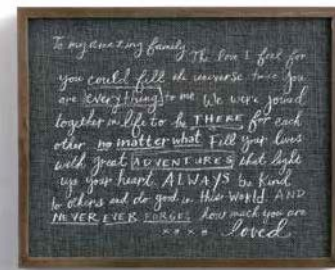 To my amazing family The love I feel for
you could fill the universe twice You
are everything to me We were joined
together in life to be THERE for each
other no matter what Fill your lives
with great ADVENTURES that light
up your heart ALWAYS be kind
to others and do good in this World AND
NEVER EVER FORGET how much you are
x x x x loved